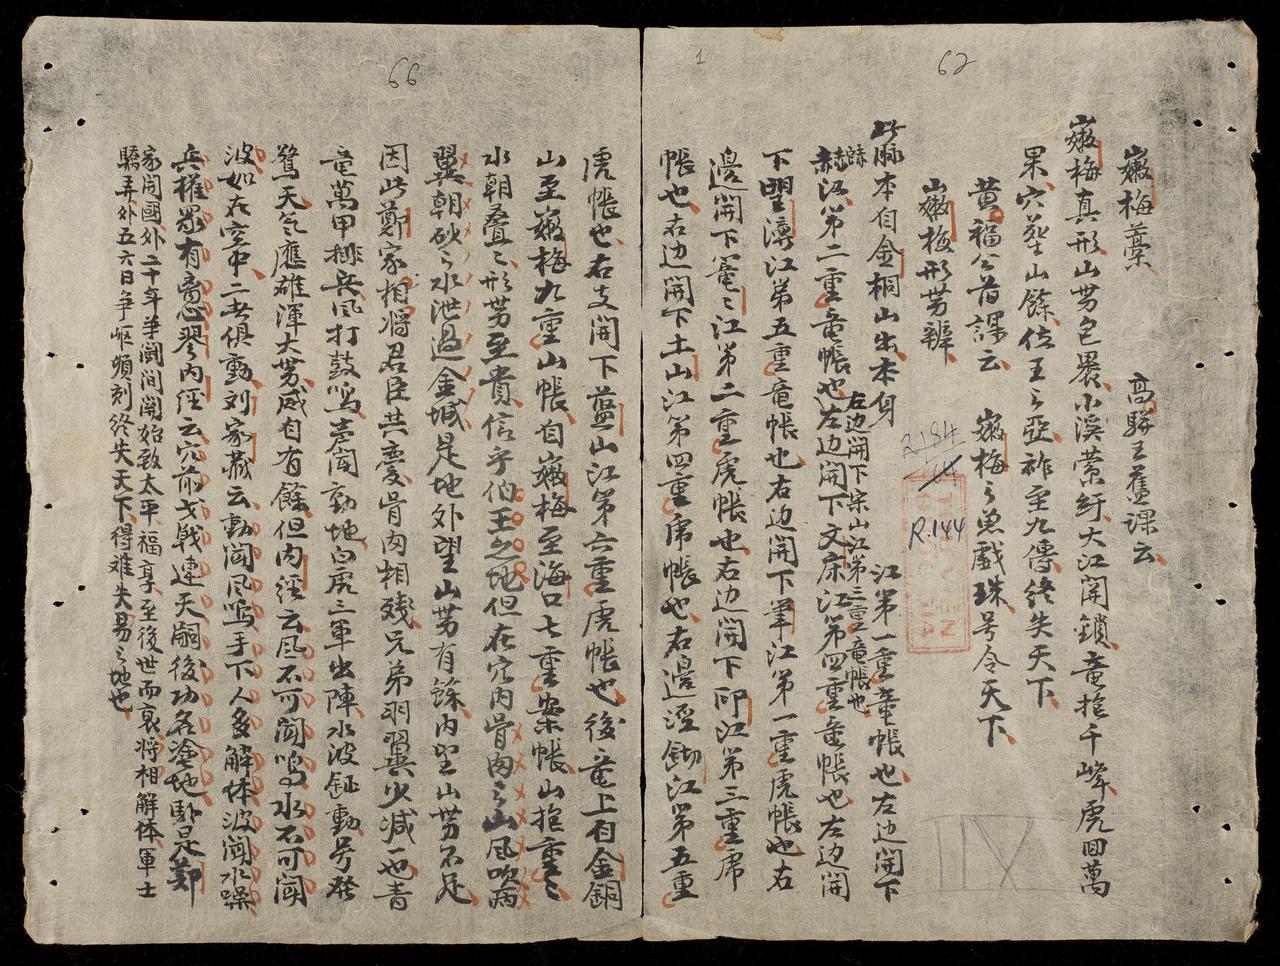 62
嫩梅藁　高駢王舊課云
嫩梅真形山势包畏小溪縈紆大江開鎖竜掩千峰虎回萬
果穴葬山餘位王之亞祚至九傳終失天下
黄福公旨課云　嫩梅之魚戲珠号令天下
山嫩梅形势辨
此脉本自金桐山出本身　江第一重竜帳也左边開下
左边開下宋山江第三重竜帳也
赫江第二重竜帳也左边開下文床江第四重竜帳也左边開
下望濤江第五重竜帳也右边開下筆江第一重虎帳也右
邊開下電々江第二重虎帳也右边開下印江第三重席
帳也右边開下土山江第四重席帳也右邊溼鋤江第五重
1
R.184
R.144
VII
66
虎帳也右支開下藍山江第六重虎帳也後竜上自金銅
山至嫩梅九重山帳自嫩梅至海口七重案帳山抱重々
水朝叠々形势至貴信乎伯王之地但在穴内骨肉之山風吹病
翼朝砂之水泄過金城是地外望山势有餘内望山势不足
因此鄭家相將君臣共慶骨肉相殘兄弟羽翼少减一也青
竜萬甲排兵風打鼓鳴声闻動地白虎三軍出陣水波鉦動号發
驚天气應雄渾大势咸自有餘但内經云風不可闻鳴水不可闻
波如在空中二者俱動刘家藏云動闻風鳴手下人多解体波闻水躁
兵權眾有离心翏内經云穴前戈戟連天嗣後功名塗地卧是鄭
家開國外二十年爭闘间開始致太平福享至後世而衰将相解体軍士
驕弄外五六日争岖頃刻终失天下得难失易之地也